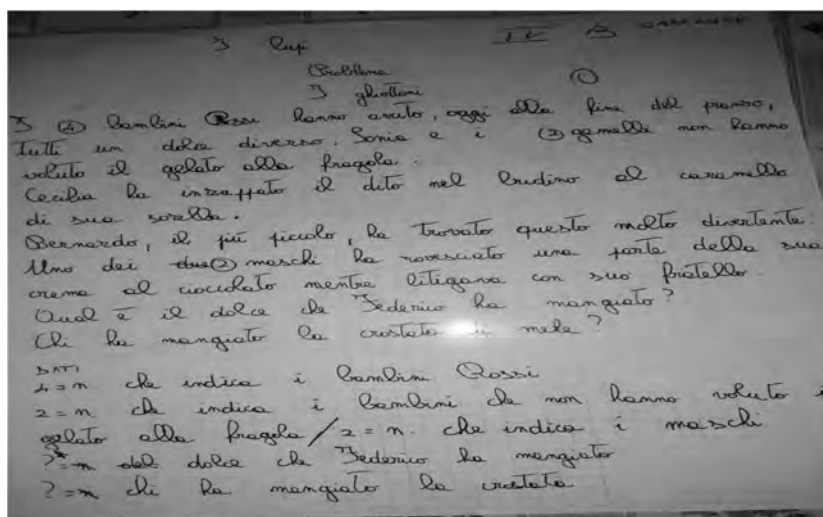 I Lupi IV B
Problema ①
I ghiottoni
I ④ bambini Rossi hanno avuto, oggi alla fine del pranzo,
tutti un dolce diverso. Sonia e i ② gemelli non hanno
voluto il gelato alla fragola.
Cecilia ha inzaffato il dito nel budino al caramello
di sua sorella.
Bernardo, il più piccolo, ha trovato questo molto divertente.
Uno dei due ② maschi ha rovesciato una parte della sua
crema al cioccolato mentre litigava con suo fratello.
Qual è il dolce che Federico ha mangiato?
Chi ha mangiato la crostata di mele?
DATI
4 = n che indica i bambini Rossi
2 = n che indica i bambini che non hanno voluto i
gelato alla fragola / 2 = n. che indica i maschi
? = n del dolce che Federico ha mangiato
? = n chi ha mangiato la crostata